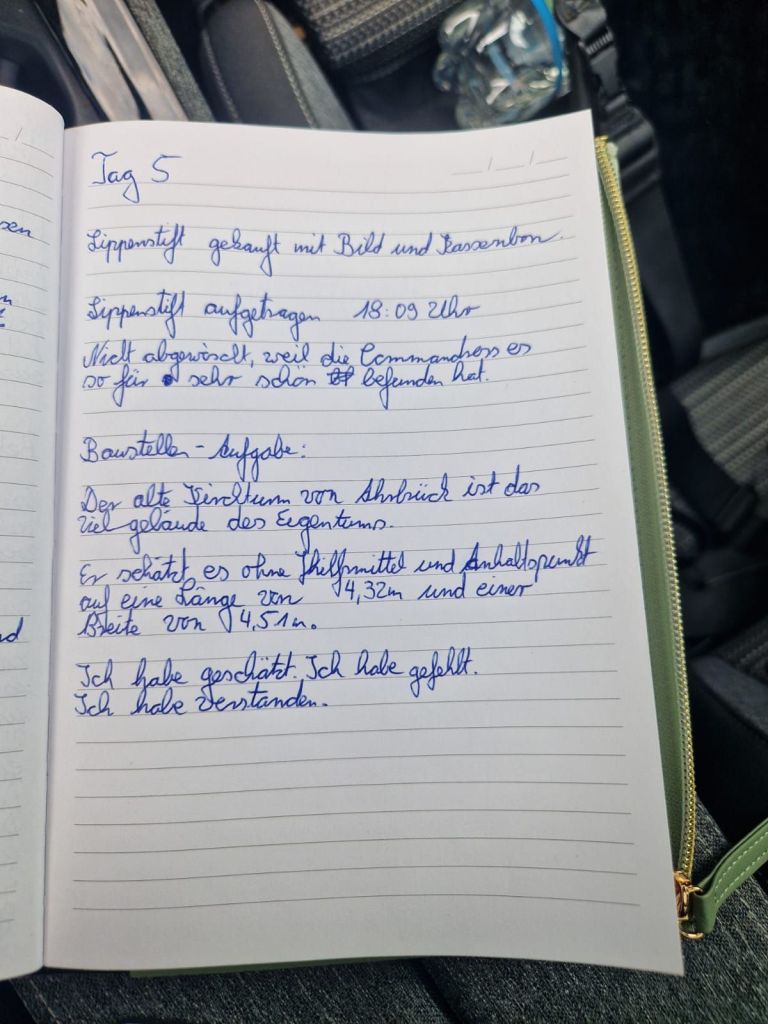 Tag 5
Lippenstift gekauft mit Bild und Kassenbon.
Lippenstift aufgetragen 18:09 Uhr
Nicht abgewischt, weil die Commandress es
so für sehr schön befunden hat.
Baustellen-Aufgabe:
Der alte Kirchturm von Ahrbrück ist das
Zielgebäude des Eigentums.
Er schätzt es ohne Hilfsmittel und Anhaltspunkt
auf eine Länge von 4,32m und einer
Breite von 4,51m.
Ich habe geschätzt. Ich habe gefehlt.
Ich habe verstanden.